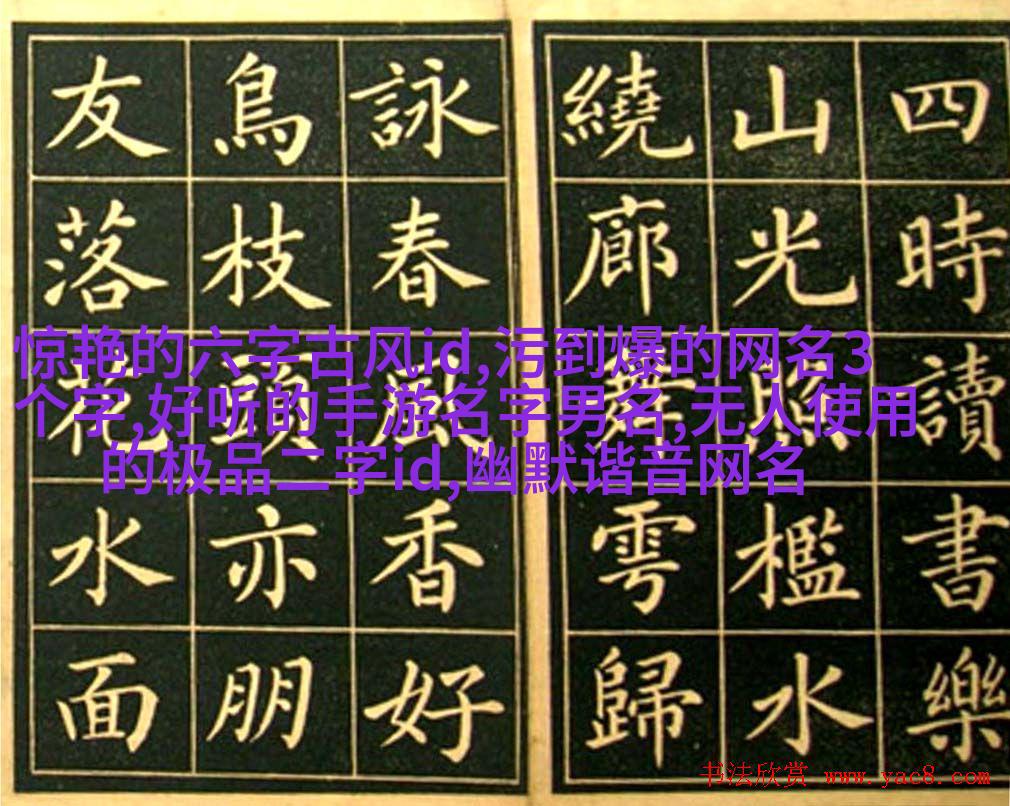 四時讀書樂
山光照檻水
繞廊舞雩歸
詠春風香好
鳥枝頭亦朋
友落花水面
惊艳的六字古风id,污到爆的网名3
个字,好听的手游名字男名,无人使用
的极品二字id,幽默谐音网名
书法欣赏 www.yac8.com